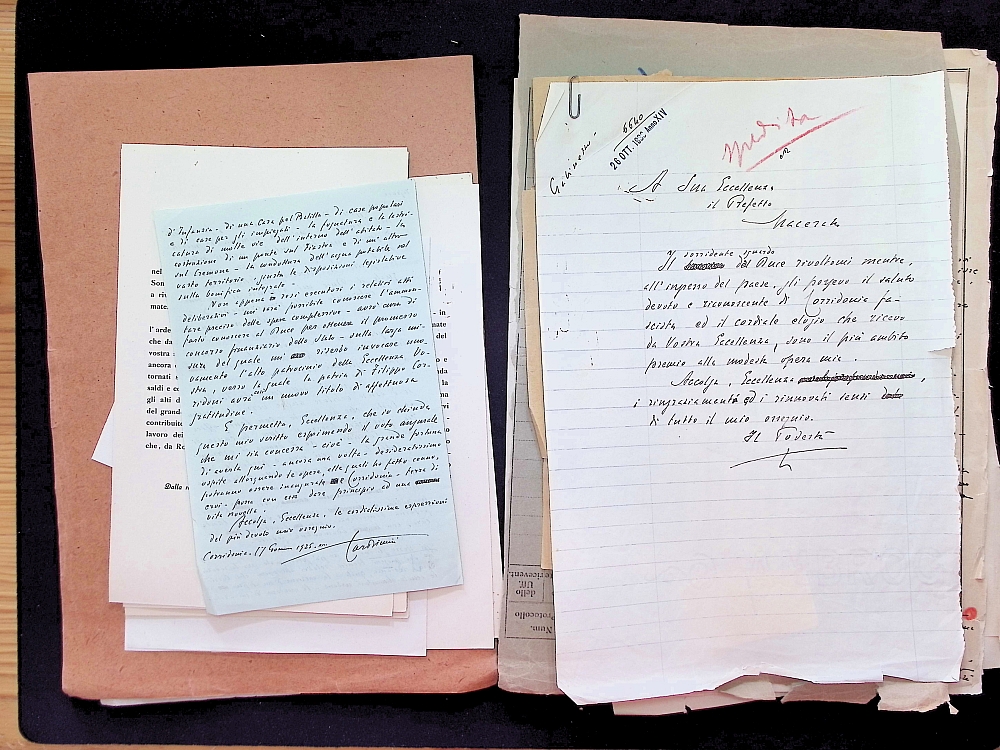 d'Infanzia - di una Casa pel Balilla - di case popolari
e di case per gli impiegati - la fognatura e la lastri-
catura di molte vie dell'interno dell'abitato - la
costruzione di un ponte sul Fiastra e di un altro
sul Cremone - la conduttura dell'acqua potabile nel
vasto territorio, giusta le disposizioni legislative
sulla bonifica integrale.
Non appena resi esecutori i relativi atti
deliberativi - mi sarà possibile conoscere l'ammon-
tare preciso delle spese complessive - avrò cura di
farlo conoscere al Duce per ottenere il promesso
concorso finanziario dello Stato - sulla larga mi-
sura del quale mi riserbo invocare nuo-
vamente l'alto patrocinio della Eccellenza Vo-
stra, verso la quale la patria di Filippo Cor-
ridoni avrà così un nuovo titolo di affettuosa
gratitudine.
E permetta, Eccellenza, che io chiuda
questo mio scritto esprimendo il voto augurale
che mi sia concessa - cioè - la grande fortuna
di averla qui - ancora una volta - desideratissimo
ospite allorquando le opere, alle quali ho fatto cenno,
potranno essere inaugurate e Corridonia, terra di
eroi - possa con esse dare principio ad una
vita novella.
Accolga, Eccellenza, le cordialissime espressioni
del più devoto mio ossequio.
Corridonia, 17 1935
nel
Son
a riu
mate
l'arde
che da
vostra
ancora
tornati
saldi e co
gli alti d
del grand
contribuit
lavoro dei
che, da Ro
Dalla
Gabinetto
6640
26 OTT. Anno XIV
spedita
A Sua Eccellenza
il Prefetto
Macerata
Il sorridente sguardo
del Duce rivoltomi mentre,
all'ingresso del paese, gli porgevo il saluto
devoto e riconoscente di Corridonia fa-
scista ed il cordiale elogio che ricevo
da Vostra Eccellenza, sono il più ambito
premio alla modesta opera mia.
Accolga, Eccellenza,
i ringraziamenti ed i rinnovati sensi
di tutto il mio ossequio.
Il Podestà
te ricevent.
dello
Uff.
Protocollo
Num.